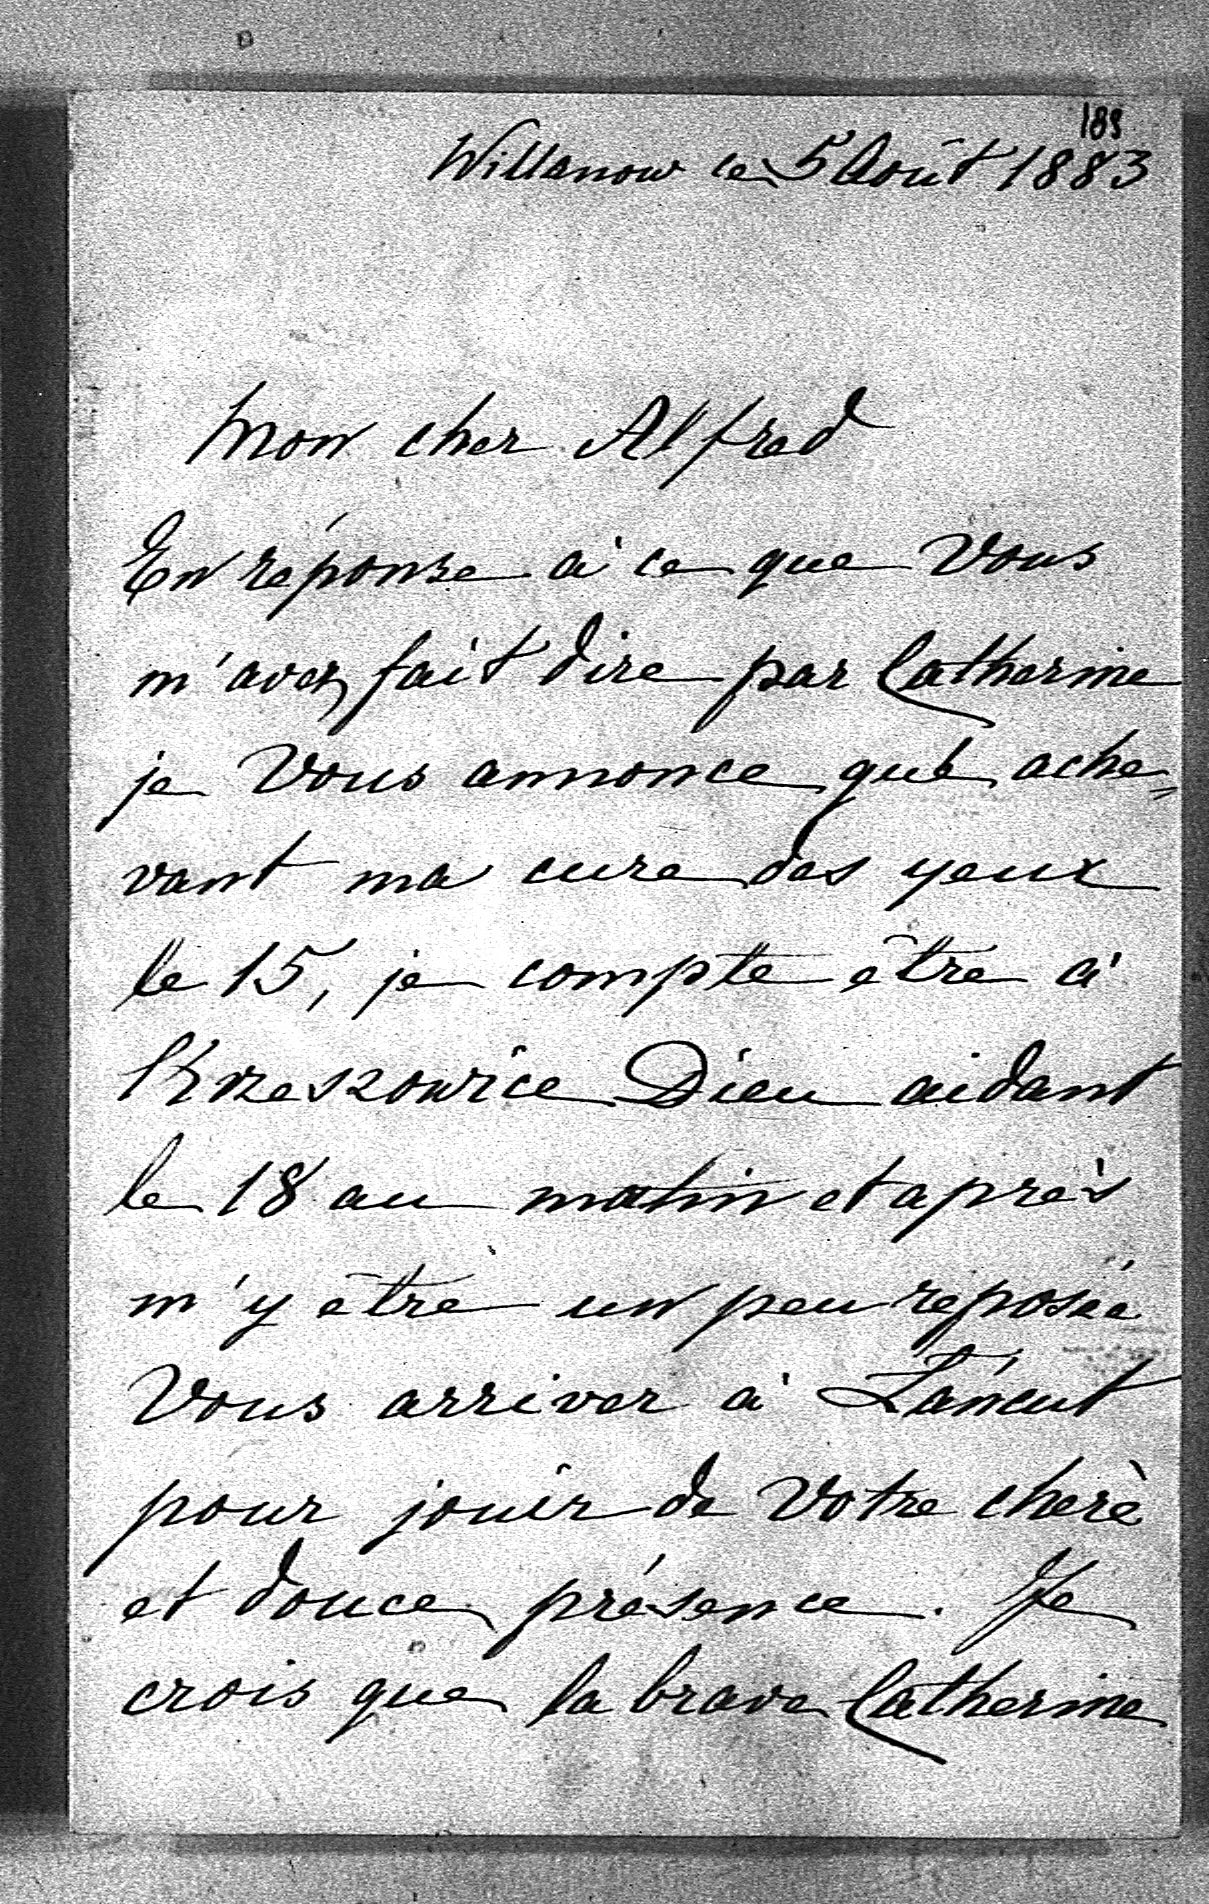 189
Willanow ce 5 Août 1883
Mon cher Alfred
En réponse à ce que Vous
m'avez fait dire par Catherine
je Vous annonce qu'é ache=
vant ma cure des yeux
le 15, je compte être à
Krzeszowice Dieu aidant
le 18 au matin et après
m'y être un peu reposée
Vous arriver à Łańcut
pour jouir de Votre chère
et douce présence. Je
crois que la brave Catherine